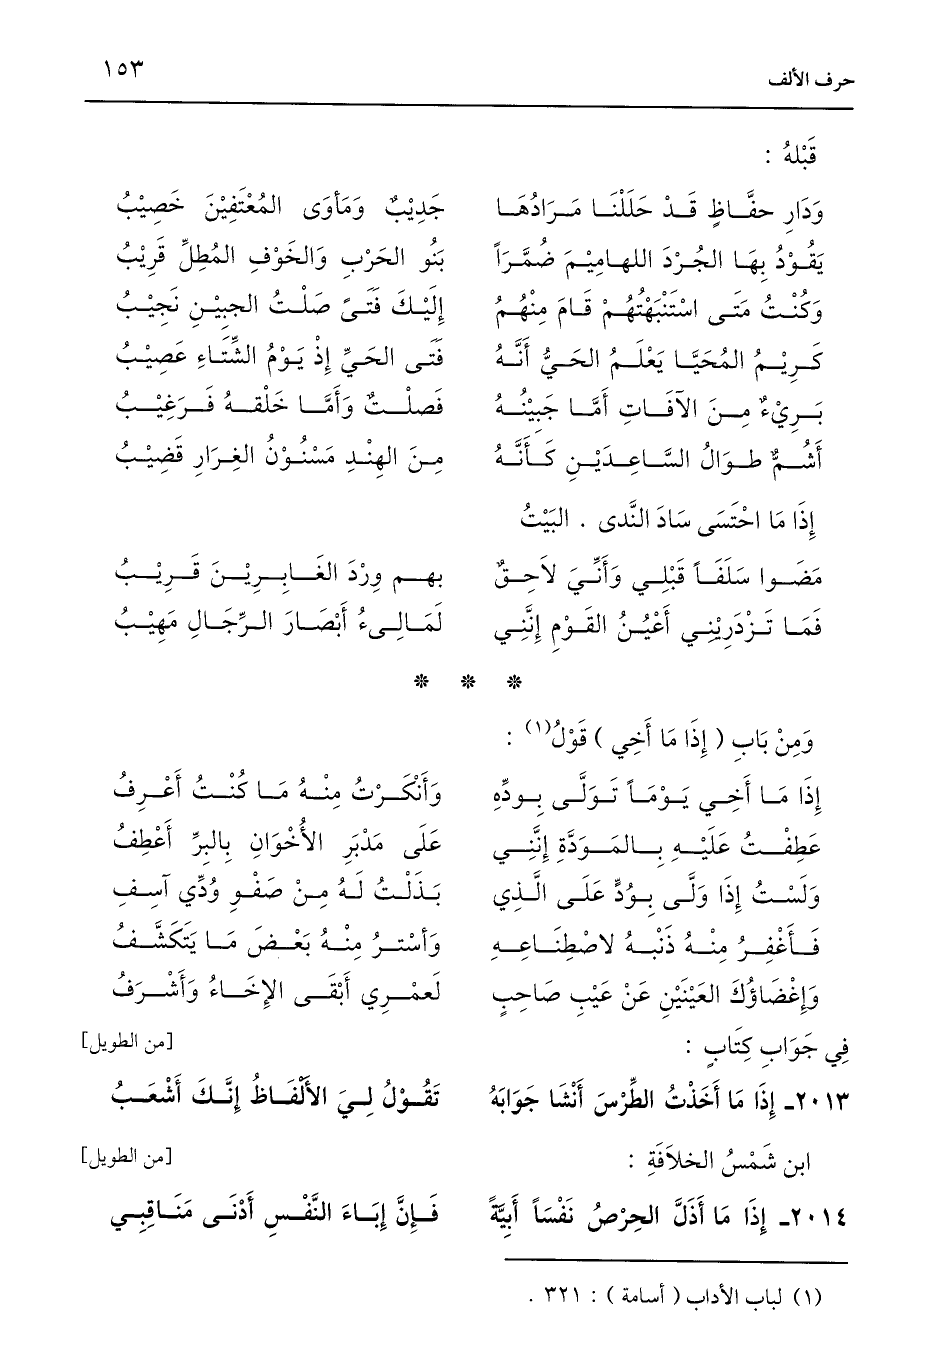 حرف الألف ١٥٣
قَبْلهُ :
وَدَارِ حفَّاظٍ قَدْ حَلَلْنَا مَرَادُهَا جَدِيْبٌ وَمَأوَى المُعْتَفِيْنَ خَصِيْبُ
يَقُوْدُ بِهَا الجُرْدَ اللهامِيْمَ ضُمَّراً بَنُو الحَرْبِ وَالخَوْفِ المُطِلِّ قَرِيْبُ
وَكُنْتُ مَتَى اسْتَنْبَهْتُهُمْ قَامَ مِنْهُمُ إِلَيْكَ فَتَىً صَلْتُ الجبِيْنِ نَجِيْبُ
كَرِيْمُ المُحَيَّا يَعْلَمُ الحَيُّ أَنَّهُ فَتَى الحَيِّ إِذْ يَوْمُ الشِّتَاءِ عَصِيْبُ
بَرِيْءٌ مِنَ الآفَاتِ أمَّا جَبِيْنُهُ فَصلْتٌ وَأمَّا خَلْقهُ فَرَغِيْبُ
أَشُمٌّ طوَالُ السَّاعِدَيْنِ كَأَنَّهُ مِنَ الهِنْدِ مَسْنُوْنُ الغِرَارِ قَضِيْبُ
إِذَا مَا احْتَسَى سَادَ النَّدى . البَيْتُ
مَضَوا سَلَفَاً قَبْلِي وَأنَّيَ لاَحِقٌ بهِم وِرْدَ الغَابِرِيْنَ قَرِيْبُ
فَمَا تَزْدَرِيْنِي أَعْيُنُ القَوْمِ إِنَّنِي لَمَالِىءُ أَبْصَارَ الرِّجَالِ مَهِيْبُ
* * *
وَمِنْ بَابِ ( إِذَا مَا أَخِي ) قَوْلُ(١) :
إِذَا مَا أَخِي يَوْمَاً تَوَلَّى بِودِّهِ وَأَنْكَرْتُ مِنْهُ مَا كُنْتُ أَعْرِفُ
عَطِفْتُ عَلَيْهِ بِالمَوَدَّةِ إِنَّنِي عَلَى مَدْبَرِ الأُخْوَانِ بِالبرِّ أَعْطِفُ
وَلَسْتُ إِذَا وَلَّى بِوُدٍّ عَلَى الَّذِي بَذَلْتُ لَهُ مِنْ صَفْوِ وُدِّي آسِفِ
فَأَغْفِرُ مِنْهُ ذَنْبهُ لاصْطِنَاعِهِ وَأسْتِرُ مِنْهُ بَعْضَ مَا يَتَكَشَّفُ
وَإِغْضَاؤُكَ العَيْنَيْنِ عَنْ عَيْبِ صَاحِبٍ لَعمْرِي أَبْقَى الإِخَاءُ وَأَشْرَفُ
فِي جَوَابِ كِتَابٍ : [من الطويل]
٢٠١٣ـ إِذَا مَا أَخَذْتُ الطِّرْسَ أَنْشَا جَوَابَهُ تَقُوْلُ لِيَ الأَلْفَاظُ إِنَّكَ أَشْعَبُ
ابن شَمْسُ الخلاَفَةِ : [من الطويل]
٢٠١٤ـ إِذَا مَا أَذَلَّ الحِرْصُ نَفْسَاً أَبِيَّةً فَإِنَّ إِبَاءَ النَّفْسِ أَدْنَى مَنَاقِبِي
(١) لباب الأداب ( أسامة ) : ٣٢١ .